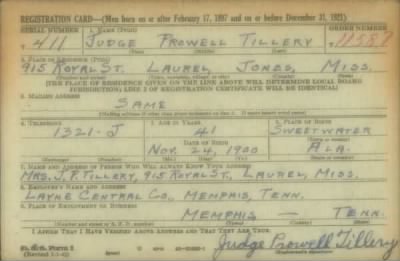 REGISTRATION CARD—(Men born on or after February 17, 1897 and on or before December 31, 1921)
SERIAL NUMBER 1. NAME (Print) ORDER NUMBER
T 411 JUDGE PROWELL TILLERY 11587
2. PLACE OF RESIDENCE (Print)
915 ROYAL ST. LAUREL JONES, MISS.
(THE PLACE OF RESIDENCE GIVEN ON THE LINE ABOVE WILL DETERMINE LOCAL BOARD
JURISDICTION; LINE 2 OF REGISTRATION CERTIFICATE WILL BE IDENTICAL)
3. MAILING ADDRESS
SAME
4. TELEPHONE 5. AGE IN YEARS 6. PLACE OF BIRTH
1321-J 41 SWEETWATER
DATE OF BIRTH
NOV. 24, 1900 ALA.
7. NAME AND ADDRESS OF PERSON WHO WILL ALWAYS KNOW YOUR ADDRESS
MRS. J. P. TILLERY, 915 ROYAL ST., LAUREL, MISS.
8. EMPLOYER'S NAME AND ADDRESS
LAYNE CENTRAL CO., MEMPHIS, TENN.
9. PLACE OF EMPLOYMENT OR BUSINESS
MEMPHIS — TENN.
I AFFIRM THAT I HAVE VERIFIED ABOVE ANSWERS AND THAT THEY ARE TRUE.
Judge Prowell Tillery